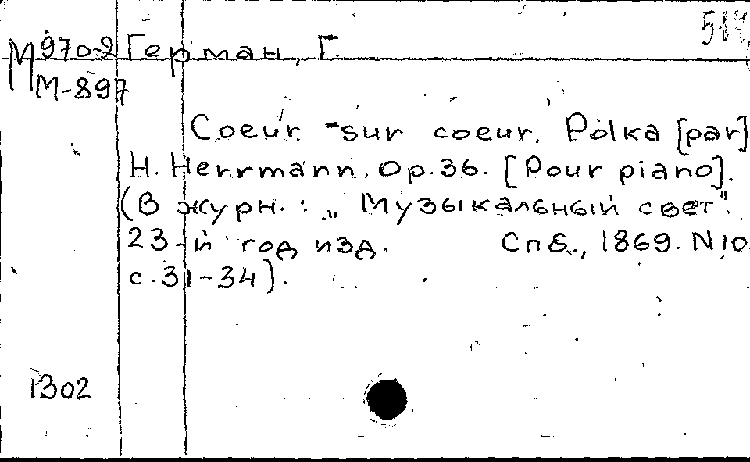 М 970-2 Герман, Г.
М-897
Coeur-sur coeur. Polka [par]
H. Herrmann. Op. 36. [Pour piano].
(В журн.: „Музыкальный свет".
23-й год изд. Спб., 1869. N10
с. 31-34).
1302